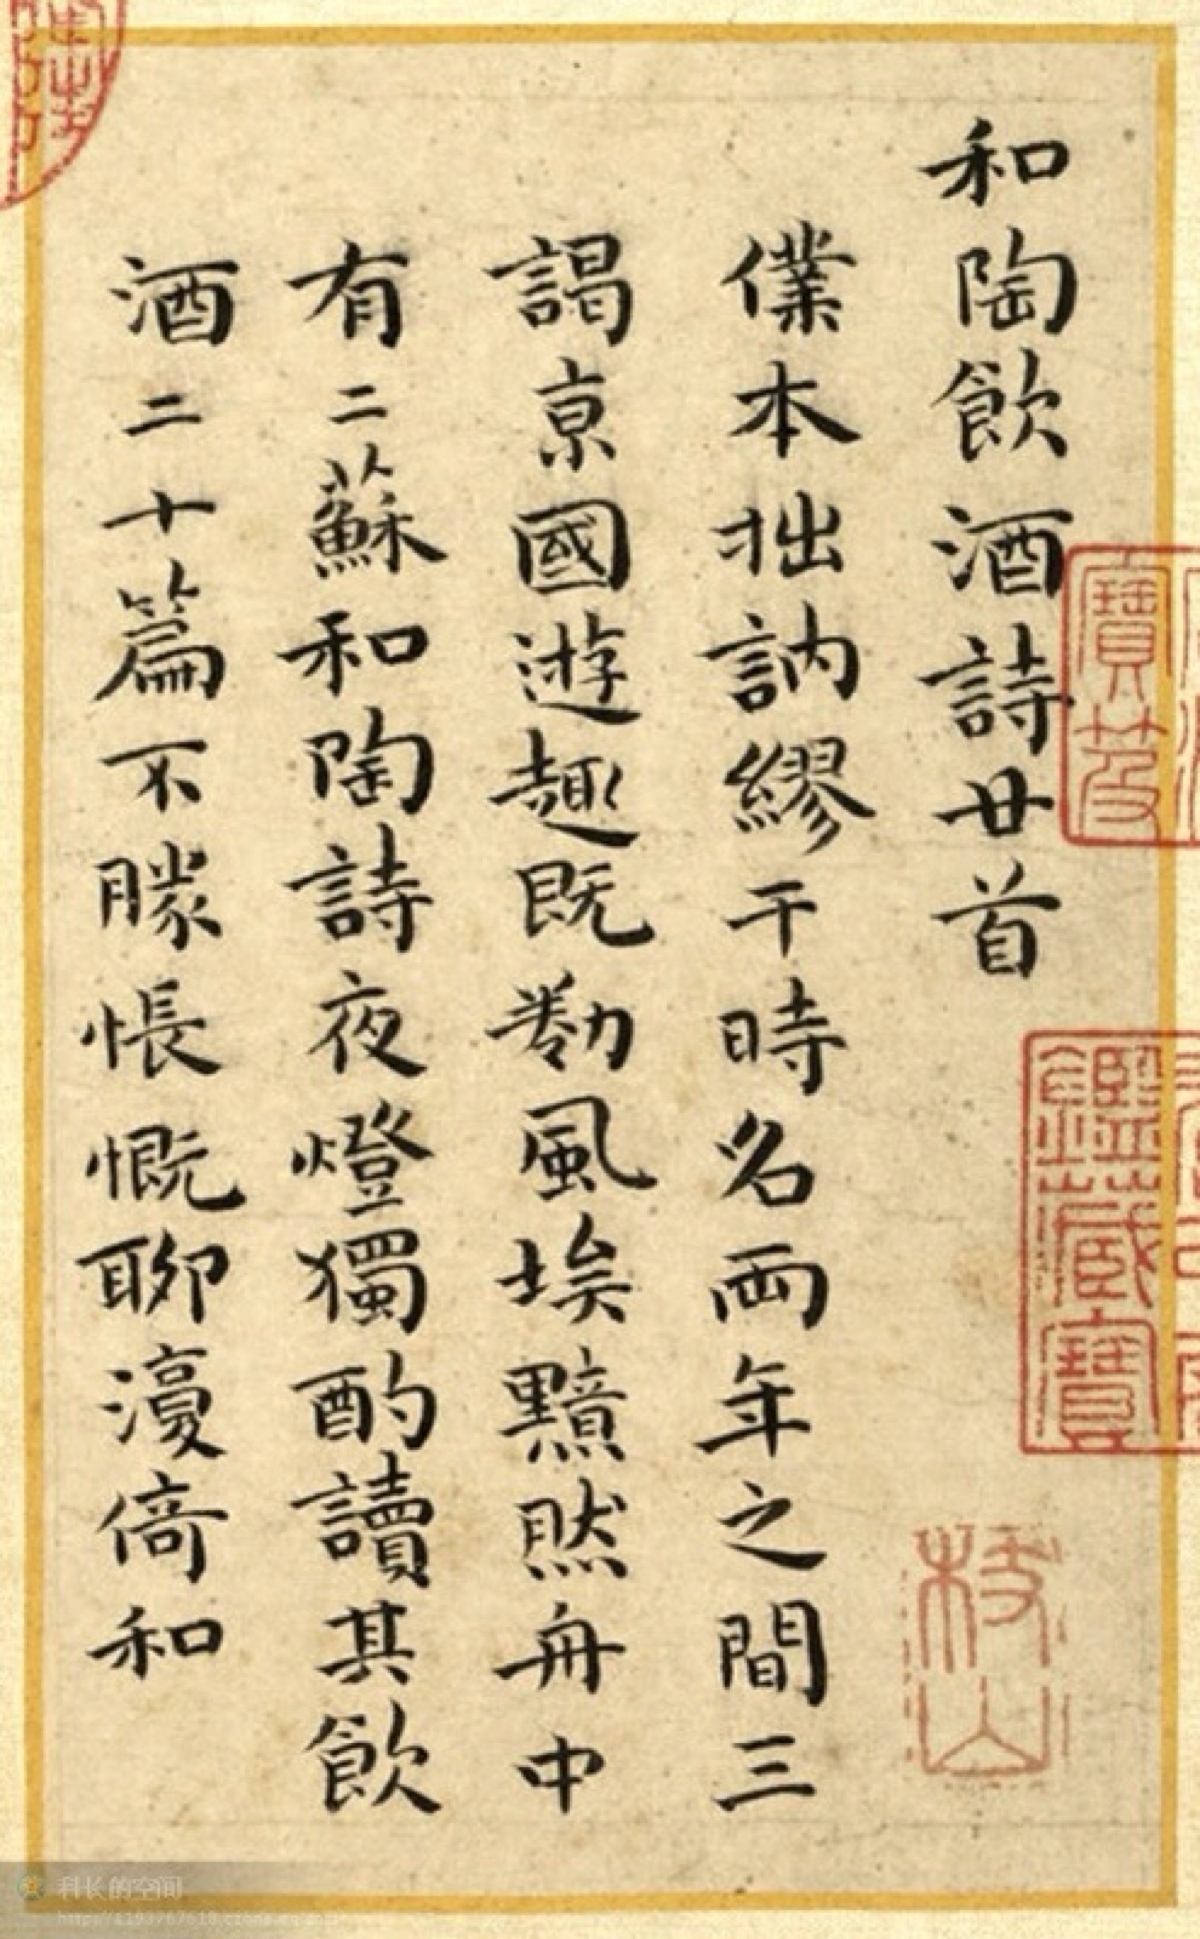 和陶飲酒詩廿首
僕本拙訥繆干時名兩年之間三
謁京國遊趣既勌風埃黯然舟中
有二蘇和陶詩夜燈獨酌讀其飲
酒二十篇不勝悵慨聊濅倚和
寶笈
鑑藏寶
枝山
科长的空间